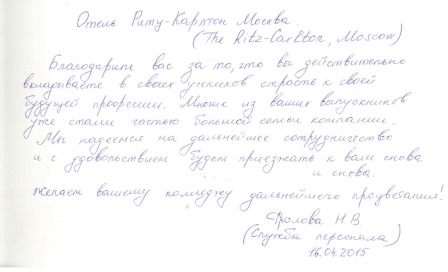 Отель Ритц-Карлтон Москва.
(The Ritz-Carlton, Moscow)
Благодарим вас за то, что вы действительно
вкладываете в своих учеников страсть к своей
будущей профессии. Многие из ваших выпускников
уже стали частью большой семьи компании.
Мы надеемся на дальнейшее сотрудничество
и с удовольствием будем приезжать к вам снова
и снова.
Желаем вашему колледжу дальнейшего процветания!
Фролова Н В
(Служба персонала)
16.04.2015